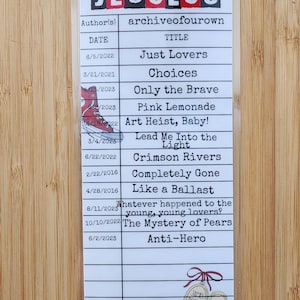 Author(s) archiveofourown
DATE TITLE
6/5/2022 Just Lovers
3/21/2021 Choices
2023 Only the Brave
2023 Pink Lemonade
2022 Art Heist, Baby!
3/4/2023 Lead Me Into the
Light
6/22/2022 Crimson Rivers
2/22/2016 Completely Gone
4/28/2016 Like a Ballast
8/11/2023 Whatever happened to the
young, young lovers?
10/10/2022 The Mystery of Pears
6/2/2023 Anti-Hero